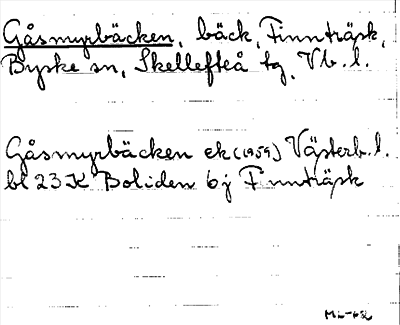 Gåsmyrbäcken, bäck, Finnträsk,
Byske sn, Skellefteå tg, Vb. l.
Gåsmyrbäcken ek (1959) Västerb. l.
bl 23 K Boliden 6j Finnträsk